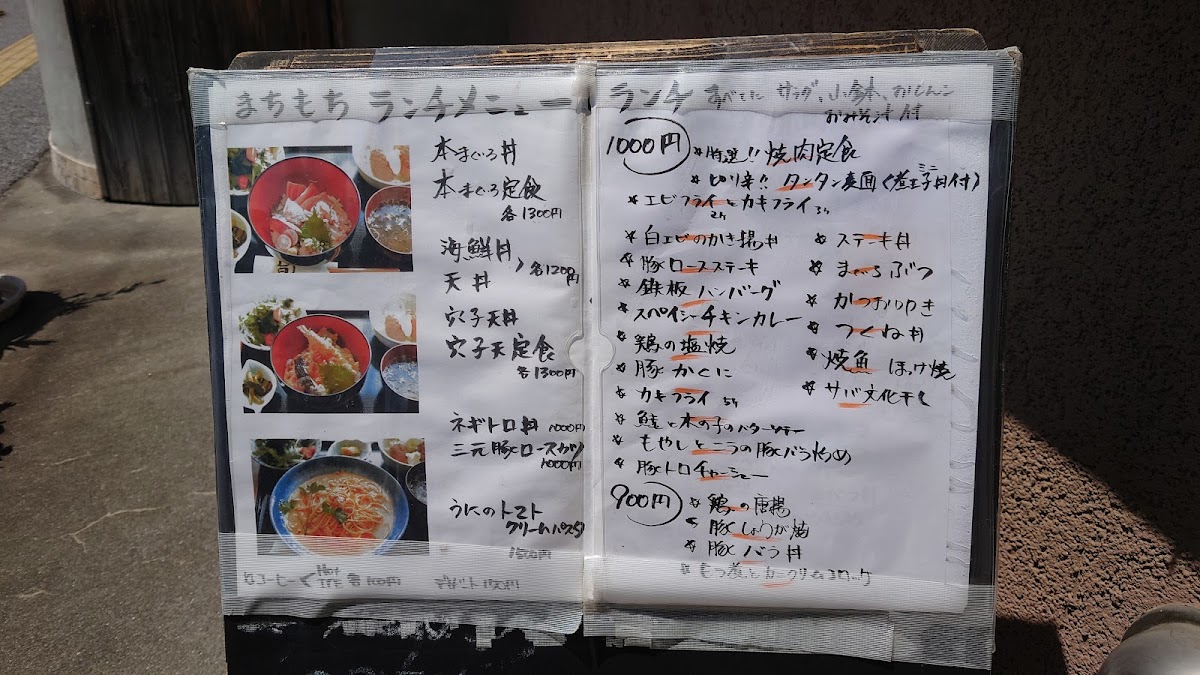 まちもち ランチメニュー
本まぐろ丼
本まぐろ定食
各1300円
海鮮丼
天丼
各1200円
穴子天丼
穴子天定食
各1300円
ネギトロ丼 1000円
三元豚ロースカツ
1000円
うにのトマト
クリームパスタ
1500円
コーヒー Hot
ICE 各100円
ランチ すべてに サラダ、小鉢、おしんこ
おみそ汁付
1000円
特選!! 焼肉定食
ピリ辛!! タンタン麺
エビフライとカキフライ
白エビのかき揚丼
豚ロースステーキ
鉄板ハンバーグ
スパイシーチキンカレー
鶏の塩焼
豚かくに
カキフライ 5ヶ
鮭と木の子のバターソテー
もやしとニラの豚バラ炒め
豚トロチャーシュー
ステーキ丼
まぐろぶつ
かつおたたき
つくね丼
焼魚 ほっけ焼
サバ文化干し
900円
鶏の唐揚
豚しょうが焼
豚バラ丼
もつ煮とカニクリームコロッケ